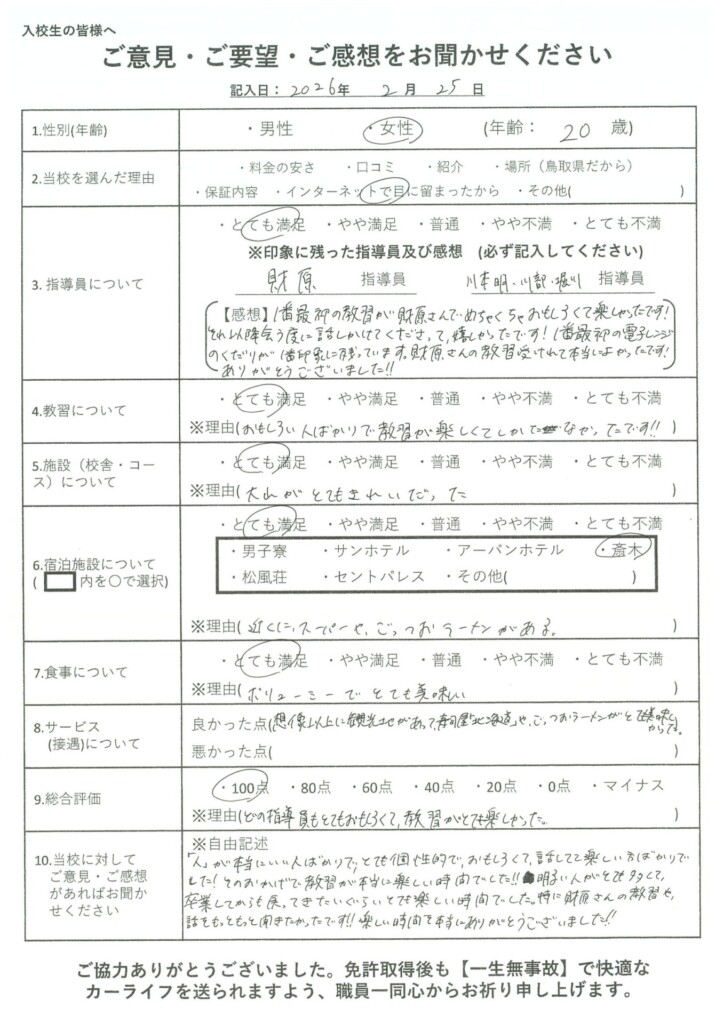 入校生の皆様へ
ご意見・ご要望・ご感想をお聞かせください
記入日：2026年 2月 25日
1.性別(年齢) ・男性 ・女性 (年齢： 20 歳)
2.当校を選んだ理由 ・料金の安さ ・口コミ ・紹介 ・場所（鳥取県だから）
・保証内容 ・インターネットで目に留まったから ・その他( )
3. 指導員について ・とても満足 ・やや満足 ・普通 ・やや不満 ・とても不満
※印象に残った指導員及び感想 (必ず記入してください)
財原 指導員 川本明・川部・堀川 指導員
【感想】1番最初の教習が財原さんでめちゃくちゃおもしろくて楽しかったです!
それ以降会う度に話しかけてくださって、嬉しかったです! 1番最初の電子レンジ
のくだりが1番印象に残っています。財原さんの教習受けれて本当によかったです!
ありがとうございました!!
4.教習について ・とても満足 ・やや満足 ・普通 ・やや不満 ・とても不満
※理由(おもしろい人ばかりで教習が楽しくてしかたなかったです!!)
5.施設（校舎・コース）について ・とても満足 ・やや満足 ・普通 ・やや不満 ・とても不満
※理由(大山がとてもきれいだった )
6.宿泊施設について ・とても満足 ・やや満足 ・普通 ・やや不満 ・とても不満
( 内を〇で選択) ・男子寮 ・サンホテル ・アーバンホテル ・斎木
・松風荘 ・セントパレス ・その他( )
※理由(近くに、スーパーや、ごっつおラーメンがある。 )
7.食事について ・とても満足 ・やや満足 ・普通 ・やや不満 ・とても不満
※理由(ボリューミーでとても美味しい )
8.サービス(接遇)について 良かった点(想像以上に観光地があって、寿司屋「北海道」や、ごっつおラーメンがとても美味しかった。)
悪かった点( )
9.総合評価 ・100点 ・80点 ・60点 ・40点 ・20点 ・0点 ・マイナス
※理由(どの指導員もとてもおもしろくて、教習がとても楽しかった。 )
10.当校に対してご意見・ご感想があればお聞かせください ※自由記述
「人」が本当にいい人ばかりで、とても個性的で、おもしろくて、話してて楽しい方ばかりで
した! そのおかげで教習が本当に楽しい時間でした!! 明るい人がとても多くて、
卒業してからも戻ってきたいぐらいとても楽しい時間でした。特に財原さんの教習や、
話をもっともっと聞きたかったです!! 楽しい時間を本当にありがとうございました!!
ご協力ありがとうございました。免許取得後も【一生無事故】で快適な
カーライフを送られますよう、職員一同心からお祈り申し上げます。